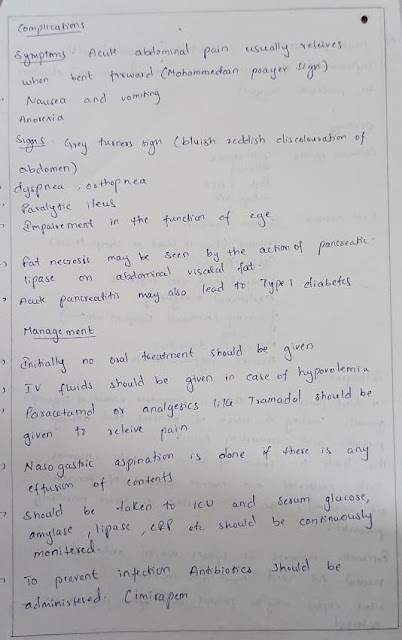 Complications
Symptoms - Acute abdominal pain usually releives
when bent forward (Mohammedean prayer sign)
Nausea and vomiting
Anorexia
Signs - Grey turners sign (bluish reddish discolouration of
abdomen)
dyspnea, orthopnea
Paralytic ileus
Impairement in the function of eye
Fat necrosis may be seen by the action of pancreatic
lipase on abdominal visceral fat.
Acute pancreatitis may also lead to Type 1 diabetes
Management
Initially no oral treatment should be given
IV fluids should be given in case of hypovolemia
Paracetamol or analgesics like Tramadol should be
given to releive pain
Nasogastric aspiration is done if there is any
effusion of contents
Should be taken to ICU and serum glucose,
amylase, lipase, CRP etc should be continuously
monitered.
To prevent infection Antibiotics should be
administered. Cimirapem